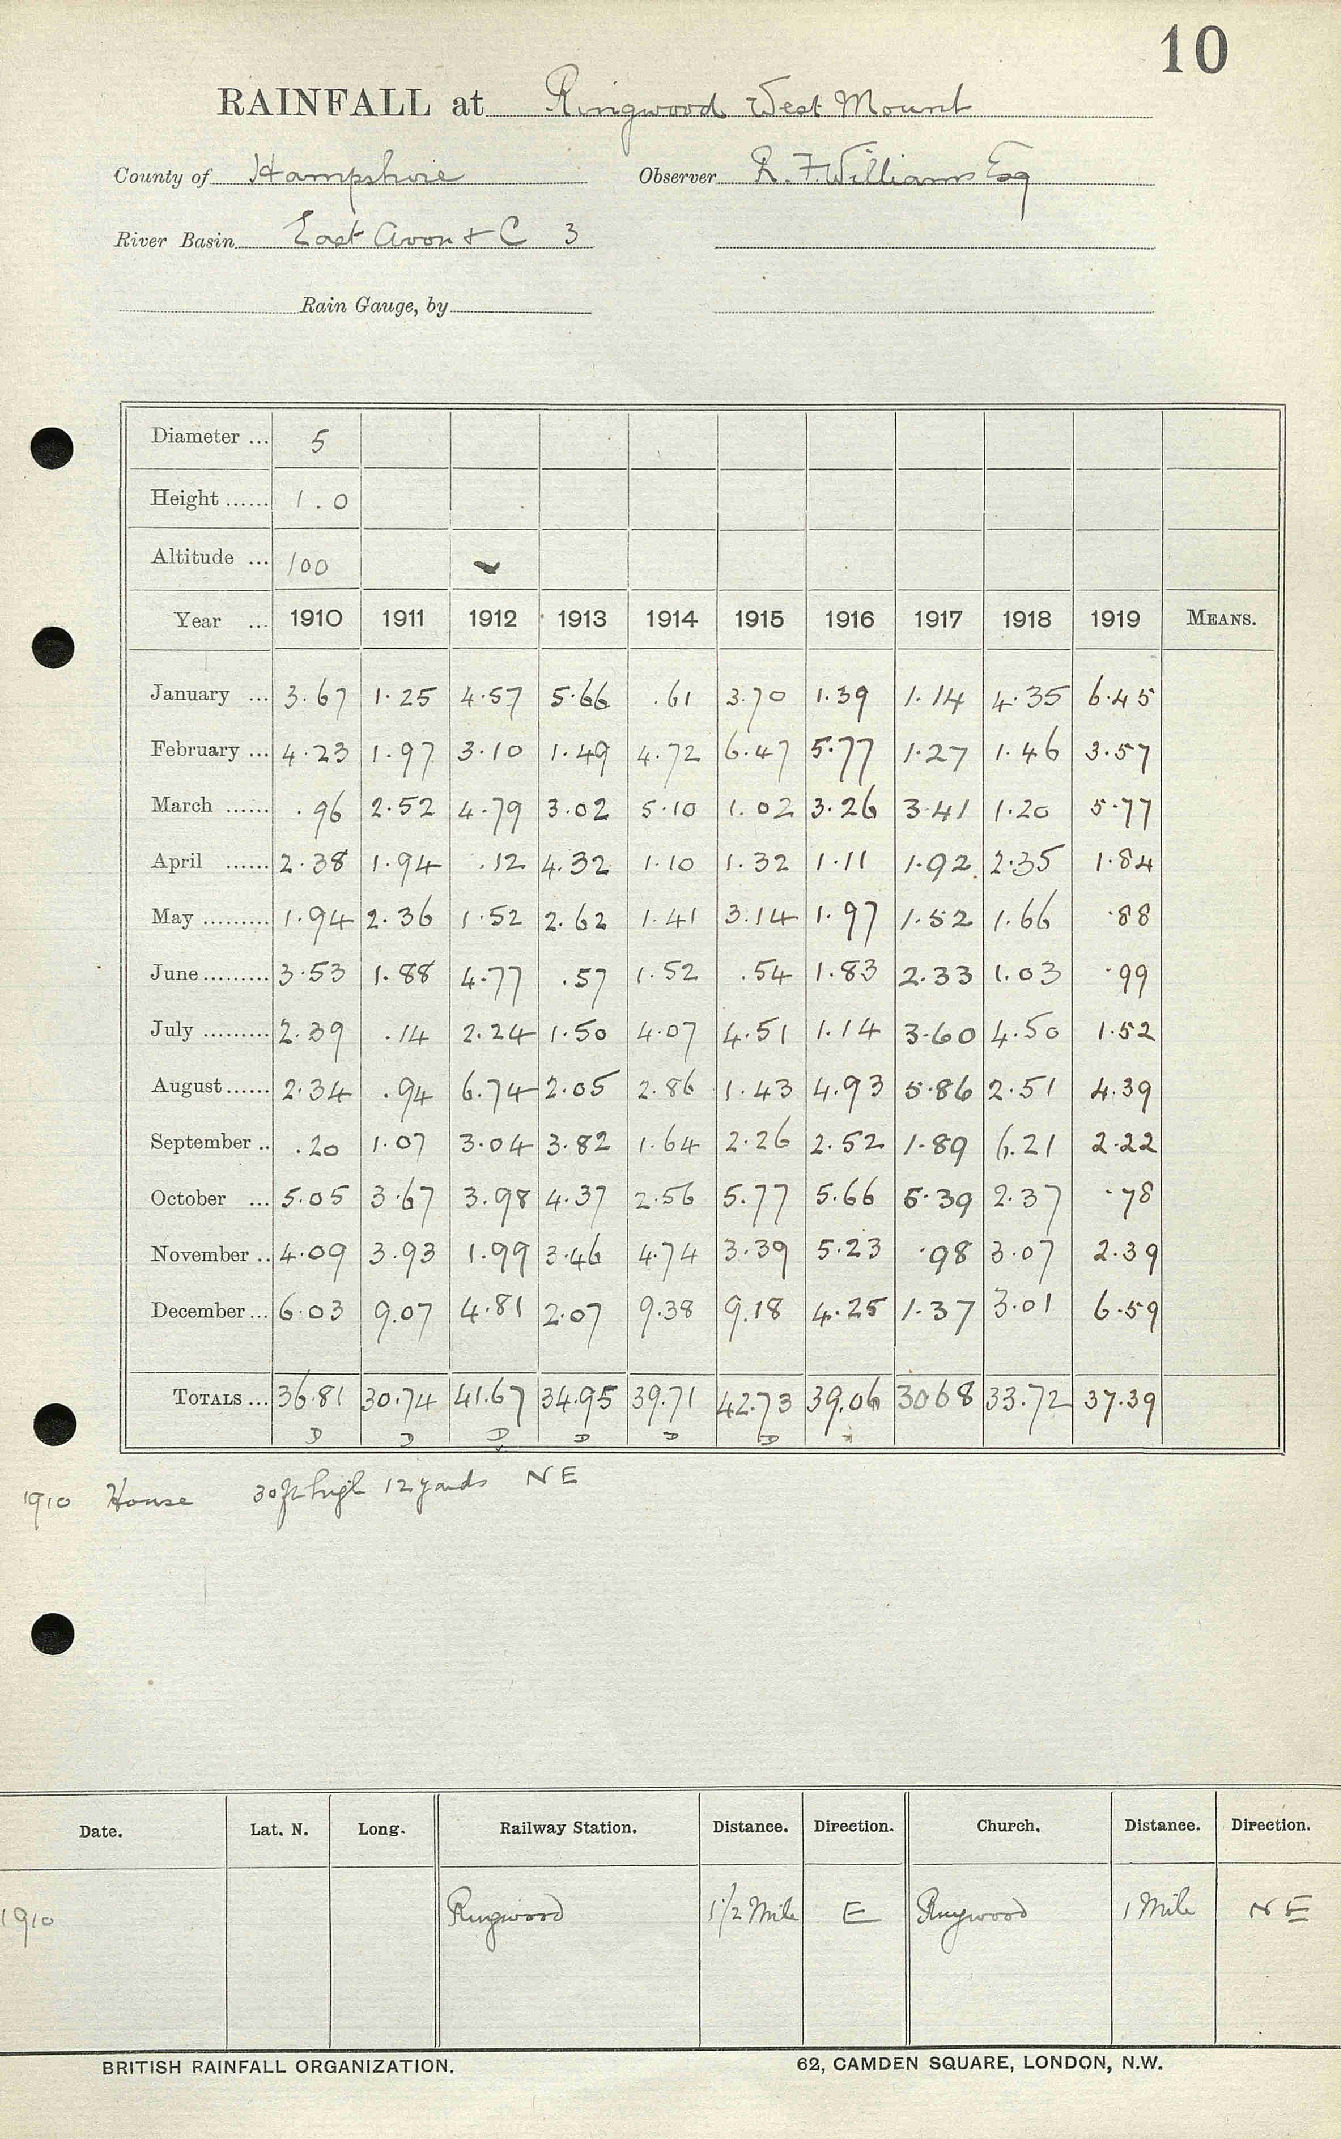 10
RAINFALL at Ringwood West Mount
County of Hampshire Observer R. F. Williams Esq
River Basin East Avon & C 3
Rain Gauge, by
Diameter ... 5
Height ...... 1.0
Altitude ... 100
Year ... 1910 1911 1912 1913 1914 1915 1916 1917 1918 1919 MEANS.
January ... 3.67 1.25 4.57 5.66 .61 3.70 1.39 1.14 4.35 6.45
February ... 4.23 1.97 3.10 1.49 4.72 6.47 5.77 1.27 1.46 3.57
March ...... .96 2.52 4.79 3.02 5.10 1.02 3.26 3.41 1.20 5.77
April ...... 2.38 1.94 .12 4.32 1.10 1.32 1.11 1.92 2.35 1.84
May ......... 1.94 2.36 1.52 2.62 1.41 3.14 1.97 1.52 1.66 .88
June ......... 3.53 1.88 4.77 .57 1.52 .54 1.83 2.33 1.03 .99
July ......... 2.39 .14 2.24 1.50 4.07 4.51 1.14 3.60 4.50 1.52
August ...... 2.34 .94 6.74 2.05 2.86 1.43 4.93 5.86 2.51 4.39
September .. .20 1.07 3.04 3.82 1.64 2.26 2.52 1.89 6.21 2.22
October ... 5.05 3.67 3.98 4.37 2.56 5.77 5.66 5.39 2.37 .78
November .. 4.09 3.93 1.99 3.46 4.74 3.39 5.23 .98 3.07 2.39
December ... 6.03 9.07 4.81 2.07 9.38 9.18 4.25 1.37 3.01 6.59
TOTALS ... 36.81 30.74 41.67 34.95 39.71 42.73 39.06 3068 33.72 37.39
D D D D D D
1910 House 30ft high 12 yards NE
Date. Lat. N. Long. Railway Station. Distance. Direction. Church. Distance. Direction.
1910 Ringwood 1 1/2 Mile E Ringwood 1 Mile NE
BRITISH RAINFALL ORGANIZATION. 62, CAMDEN SQUARE, LONDON, N.W.